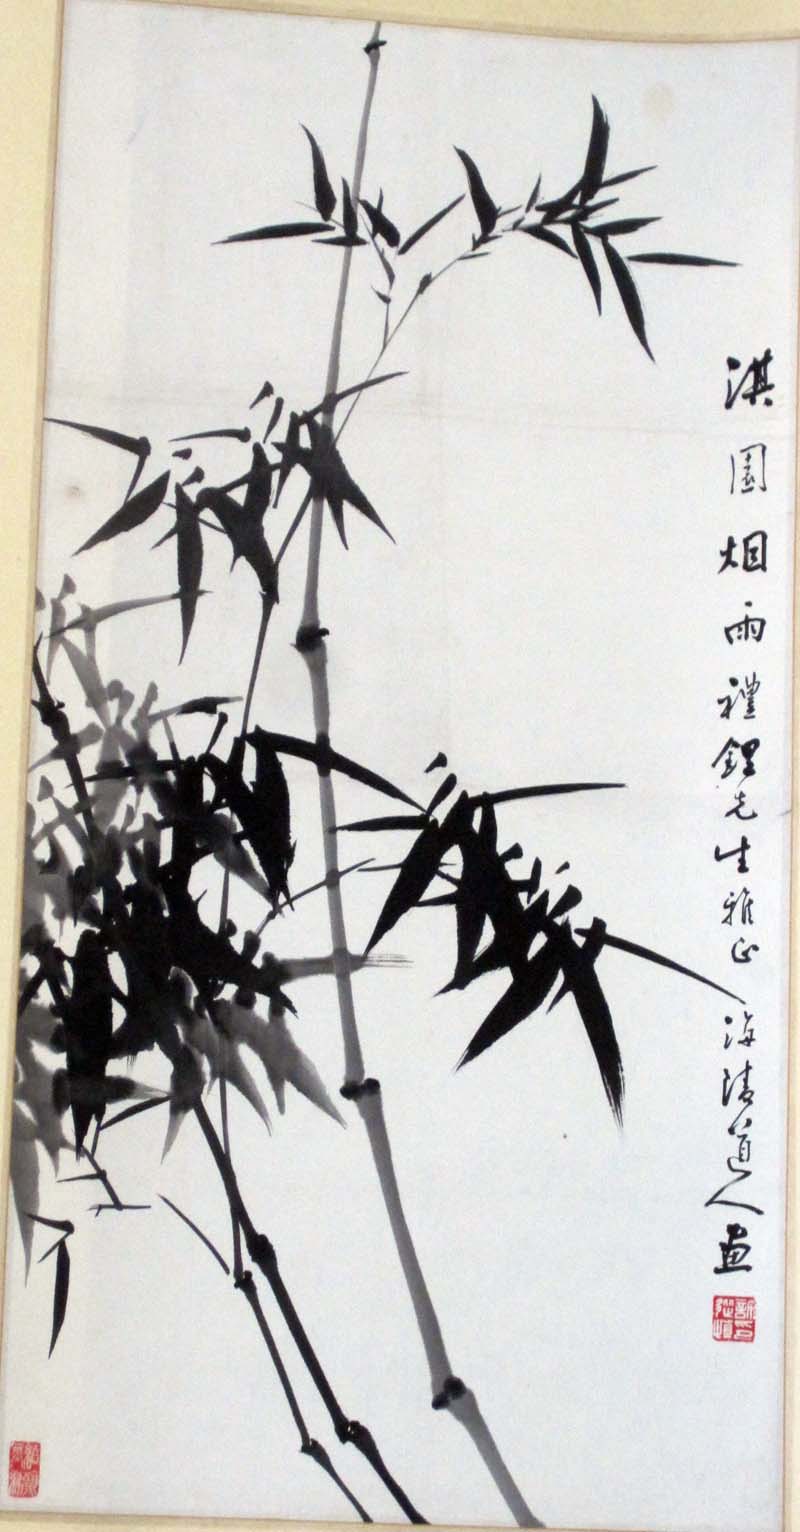 淇園烟雨禮鋰先生雅正海清道人画